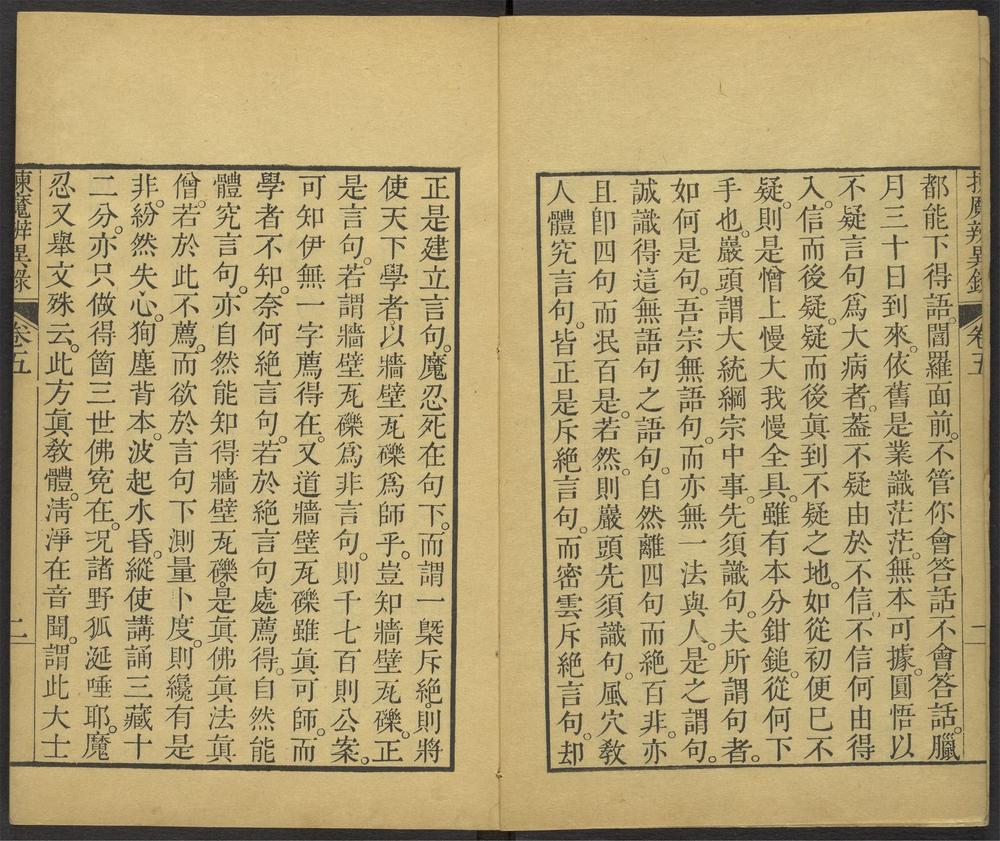 揀魔辨異錄 卷五 二
都能下得語。閻羅面前。不管你會答話不會答話。臘
月三十日到來。依舊是業識茫茫。無本可據。圓悟以
不疑言句爲大病者。葢不疑由於不信。不信何由得
入。信而後疑。疑而後眞到不疑之地。如從初便已不
疑。則是憎上慢大我慢全具。雖有本分鉗鎚。從何下
手也。巖頭謂大統綱宗中事。先須識句。夫所謂句者。
如何是句。吾宗無語句。而亦無一法與人。是之謂句。
誠識得這無語句之語句。自然離四句而絕百非。亦
且卽四句而泯百是。若然。則巖頭先須識句。風穴敎
人體究言句。皆正是斥絕言句。而密雲斥絕言句。却
正是建立言句。魔忍死在句下。而謂一槩斥絕。則將
使天下學者。以牆壁瓦礫爲師乎。豈知牆壁瓦礫。正
是言句。若謂牆壁瓦礫爲非言句。則千七百則公案。
可知伊無一字薦得在。又道牆壁瓦礫雖眞可師。而
學者不知。奈何絕言句。若於絕言句處薦得。自然能
體究言句。亦自然能知得牆壁瓦礫。是眞佛眞法眞
僧。若於此不薦。而欲於言句下測量卜度。則纔有是
非。紛然失心。狥塵背本。波起水昏。縱使講誦三藏十
二分。亦只做得箇三世佛寃在。況諸野狐涎唾耶。魔
忍又舉文殊云。此方眞敎體。淸淨在音聞。謂此大士
揀魔辨異錄 卷五 二